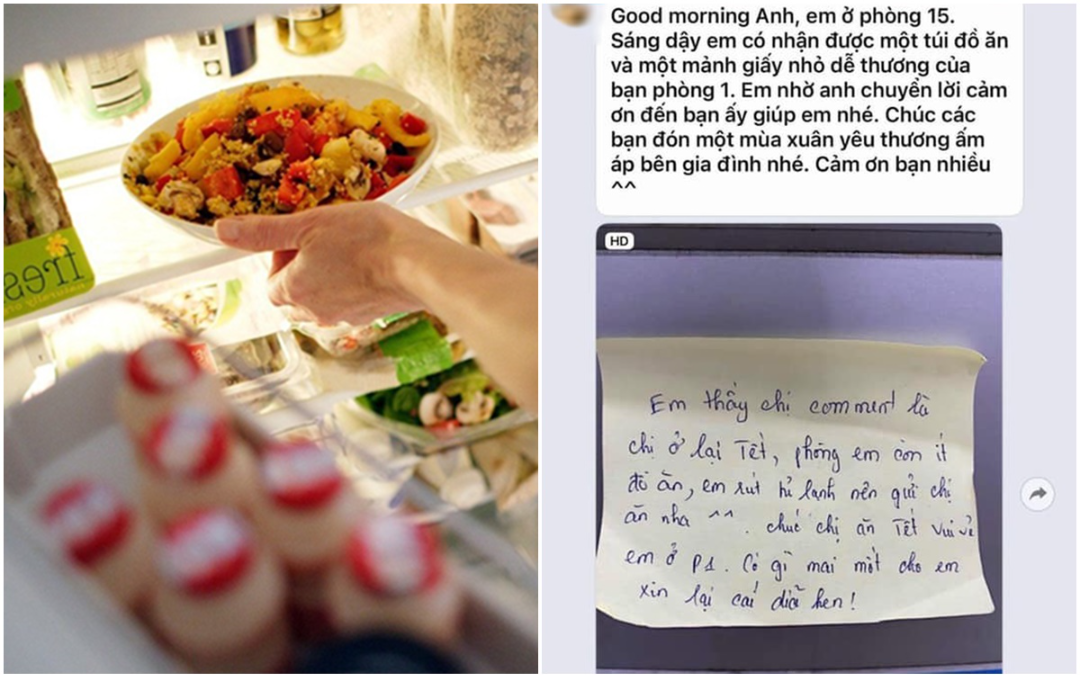 fresh
Good morning Anh, em ở phòng 15.
Sáng dậy em có nhận được một túi đồ ăn
và một mảnh giấy nhỏ dễ thương của
bạn phòng 1. Em nhờ anh chuyển lời cảm
ơn đến bạn ấy giúp em nhé. Chúc các
bạn đón một mùa xuân yêu thương ấm
áp bên gia đình nhé. Cảm ơn bạn nhiều
^^
HD
Em thấy chị comment là
chị ở lại Tết, phòng em còn ít
đồ ăn, em rút tủ lạnh nên gửi chị
ăn nha ^^. chúc chị ăn Tết vui vẻ
em ở P1. Có gì mai một cho em
xin lại cái dĩa hen!